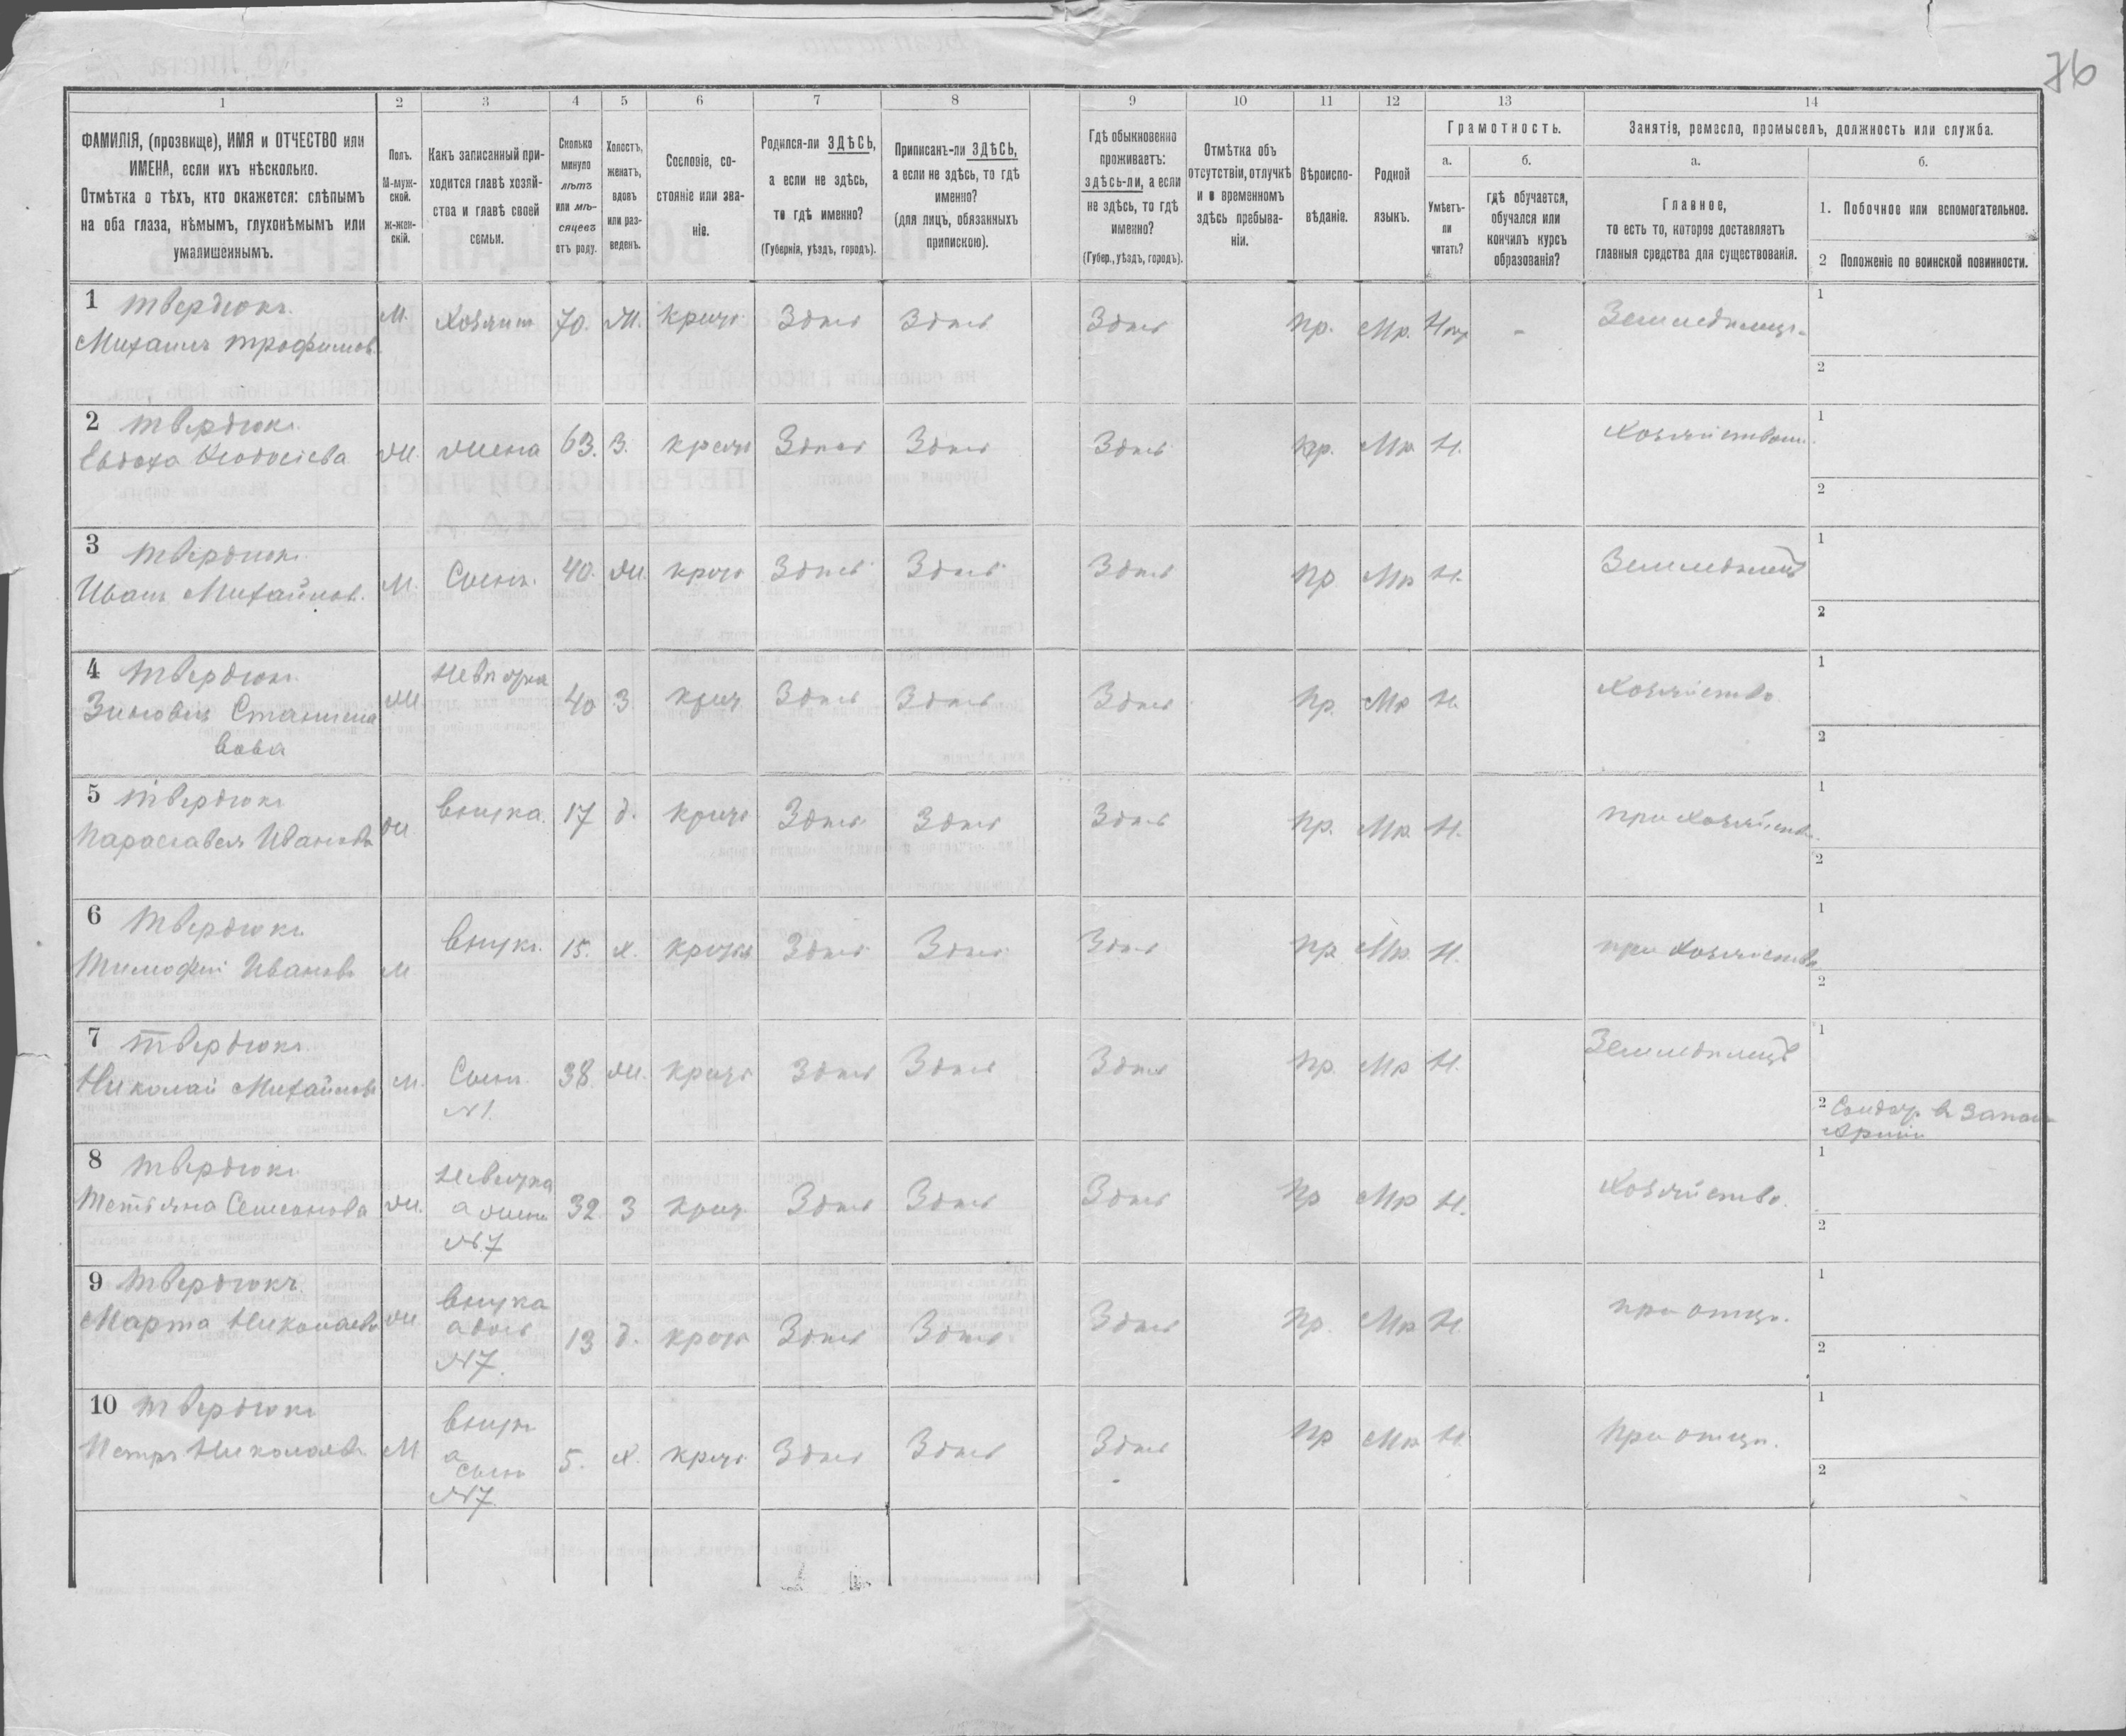 76
1 2 3 4 5 6 7 8 9 10 11 12 13 14
ФАМИЛІЯ, (прозвище), ИМЯ и ОТЧЕСТВО или ИМЕНА, если ихъ нѣсколько.
Отмѣтка о тѣхъ, кто окажется: слѣпымъ на оба глаза, нѣмымъ, глухонѣмымъ или умалишеннымъ.
Полъ.
М-мужской.
ж-женскій.
Какъ записанный приходится главѣ хозяйства и главѣ своей семьи.
Сколько минуло лѣтъ или мѣсяцевъ отъ роду.
Холостъ, женатъ, вдовъ или разведенъ.
Сословіе, состояніе или званіе.
Родился-ли ЗДѢСЬ, а если не здѣсь, то гдѣ именно?
(Губернія, уѣздъ, городъ).
Приписанъ-ли ЗДѢСЬ, а если не здѣсь, то гдѣ именно?
(для лицъ, обязанныхъ припискою).
Гдѣ обыкновенно проживаетъ: здѣсь-ли, а если не здѣсь, то гдѣ именно?
(Губер., уѣздъ, городъ).
Отмѣтка объ отсутствіи, отлучкѣ и о временномъ здѣсь пребываніи.
Вѣроисповѣданіе.
Родной языкъ.
Грамотность.
а.
Умѣетъ-ли читать?
б.
гдѣ обучается, обучался или кончилъ курсъ образованія?
Занятіе, ремесло, промыселъ, должность или служба.
а.
Главное,
то есть то, которое доставляетъ главныя средства для существованія.
б.
1. Побочное или вспомогательное.
2 Положеніе по воинской повинности.
1 Твердюкъ
Михаилъ Трофимов. М. Хозяинъ 70. Ж. крест Здѣсь Здѣсь Здѣсь пр. Мр. - Земледѣлецъ 1
2
2 Твердюкъ
Евдоха Феодосіева Ж. жена 63. З. крест Здѣсь Здѣсь Здѣсь пр. Мр Н. 1
2
3 Твердюкъ
Иванъ Михайлов. М. Сынъ. 40. Ж. крест Здѣсь Здѣсь Здѣсь пр Мр Н. Земледѣлецъ 1
2
4 Твердюкъ
Зиновія Станисла
вова Ж Невѣстка 40 З. крест Здѣсь Здѣсь Здѣсь пр. Мр Н. Хозяйство 1
2
5 Твердюкъ
Параскавея Иванова Ж внучка. 17 д. крест Здѣсь Здѣсь Здѣсь пр. Мр. Н. при хозяйств 1
2
6 Твердюкъ
Тимофей Иванов М внукъ. 15. х. крест Здѣсь Здѣсь Здѣсь пр Мр. Н. при хозяйств 1
2
7 Твердюкъ
Николай Михайлов М. Сынъ
№1. 38. Ж. крест Здѣсь Здѣсь Здѣсь пр. Мр Н. Земледѣлецъ 1
2 Солдат в Запас
Арміи
8 Твердюкъ
Тетьяна Семенова Ж. Невѣстка
а жена
№7 32 З крест Здѣсь Здѣсь Здѣсь пр Мр Н. Хозяйство. 1
2
9 Твердюкъ
Марта Николаева Ж. внучка
а дочь
№7. 13 д. крест Здѣсь Здѣсь Здѣсь пр. Мр Н. при отцѣ. 1
2
10 Твердюкъ
Петръ Николаев М внукъ
а
сынъ
№7. 5. х. крест Здѣсь Здѣсь Здѣсь пр Мр Н при отцѣ. 1
2